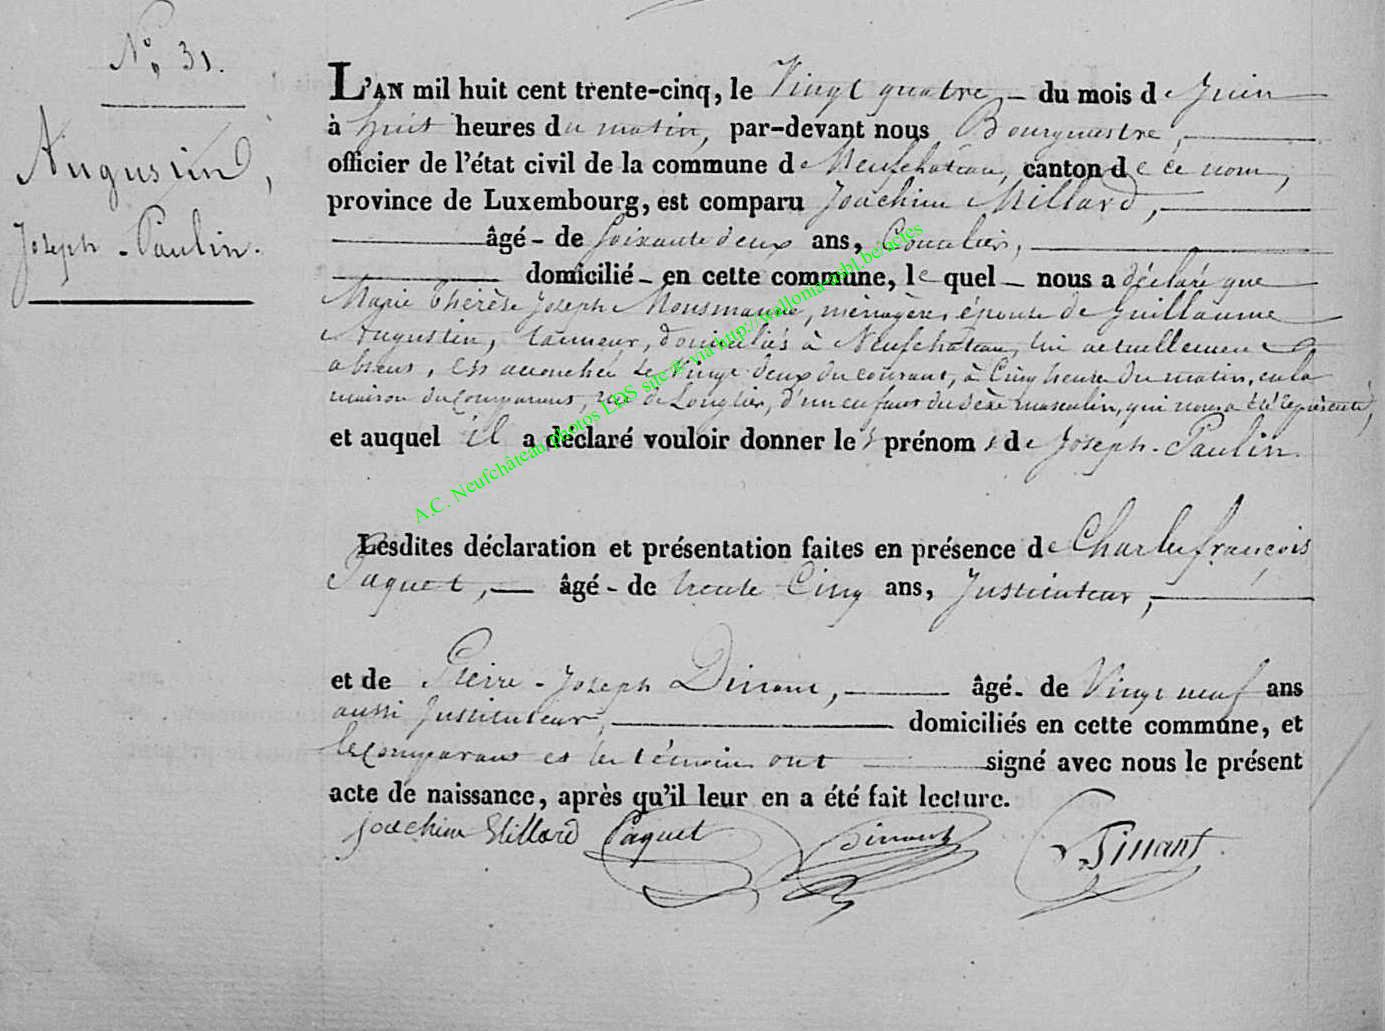 N° 31.
Augustin,
Joseph-Paulin.
L'AN mil huit cent trente-cinq, le Vingt quatre du mois de Juin
à huit heures du matin, par-devant nous Bourgmestre,
officier de l'état civil de la commune de Neufchâteau, canton de ce nom,
province de Luxembourg, est comparu Joachim Millard,
âgé - de soixante deux ans,
domicilié - en cette commune, le quel - nous a déclaré que
Marie Thérèse Joseph ménagère, épouse de Guillaume
Augustin, tanneur, domiciliés à Neufchâteau, lui actuellement
absent, est accouchée le Vingt deux du courant, à Cinq heures du matin, en la
maison du Comparant, rue de Longlier, d'un enfant du sexe masculin, qui nous a été représenté,
et auquel il a déclaré vouloir donner les prénoms de Joseph-Paulin.
Lesdites déclaration et présentation faites en présence de Charles françois
Paquet, âgé - de trente Cinq ans, Instituteur,
et de Pierre-Joseph Dinant, âgé - de Vingt neuf ans
aussi Instituteur, domiciliés en cette commune, et
le Comparant et les témoins ont signé avec nous le présent
acte de naissance, après qu'il leur en a été fait lecture.
Joachim Millard Paquet Dinant
A.C. Neufchâteau photos LDS site & via http://wallonia-asbl.be/actes